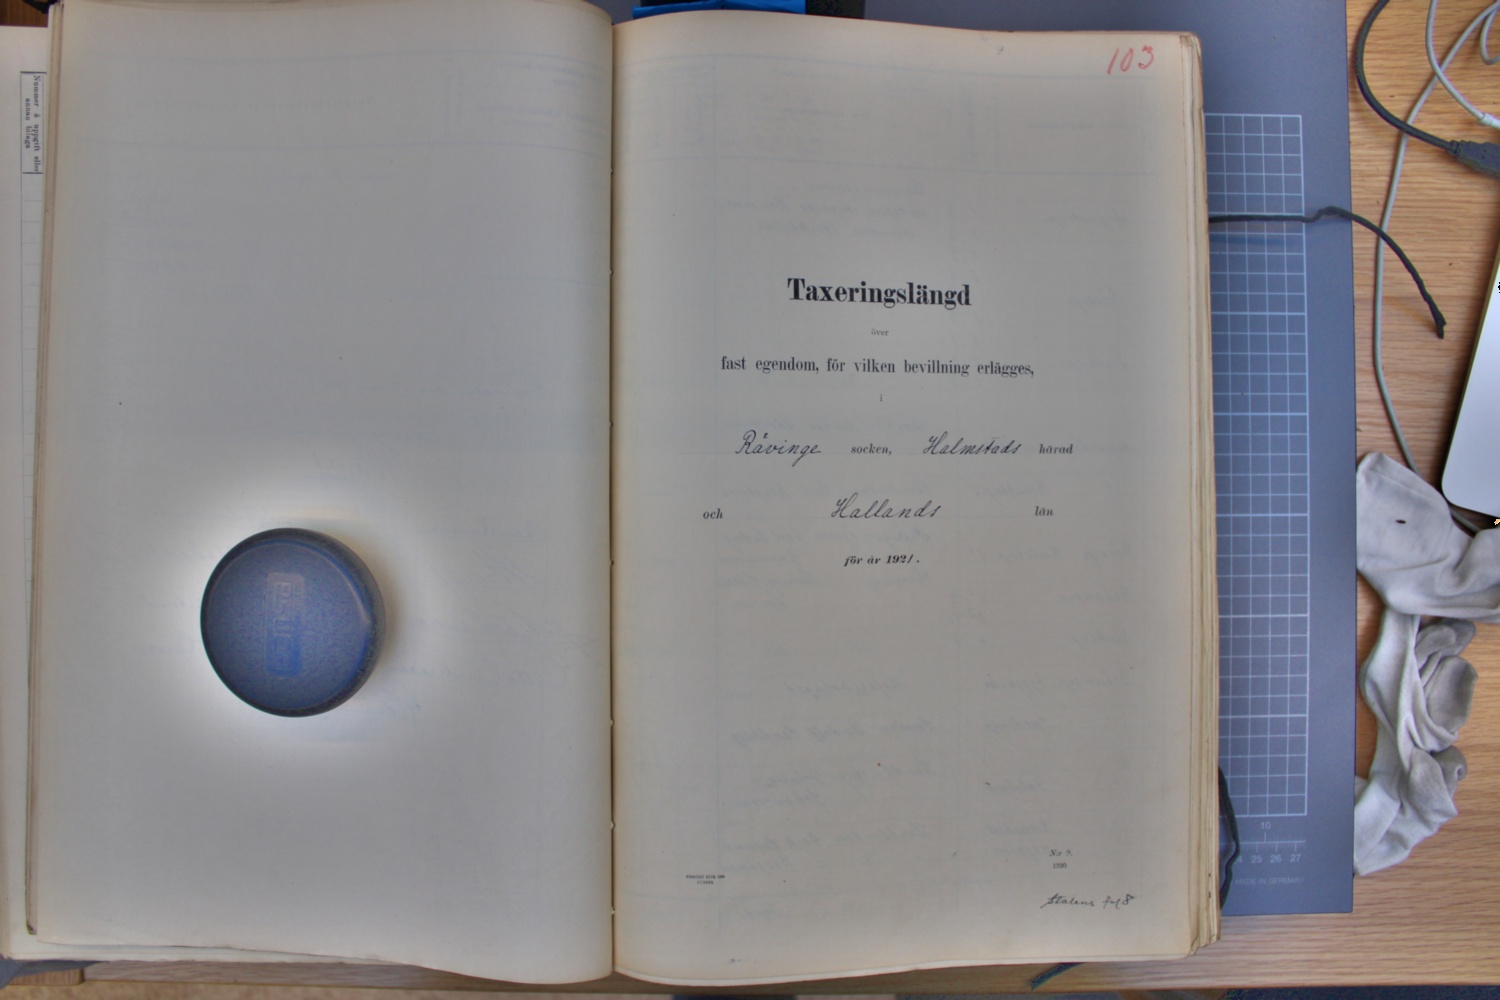 Nummer å uppgift eller
annan bilaga
103
Taxeringslängd
över
fast egendom, för vilken bevillning erlägges,
i
Rävinge socken, Halmstads härad
och Hallands län
för år 1921.
N:r 9.
1920
10
25 26 27
MADE IN GERMANY